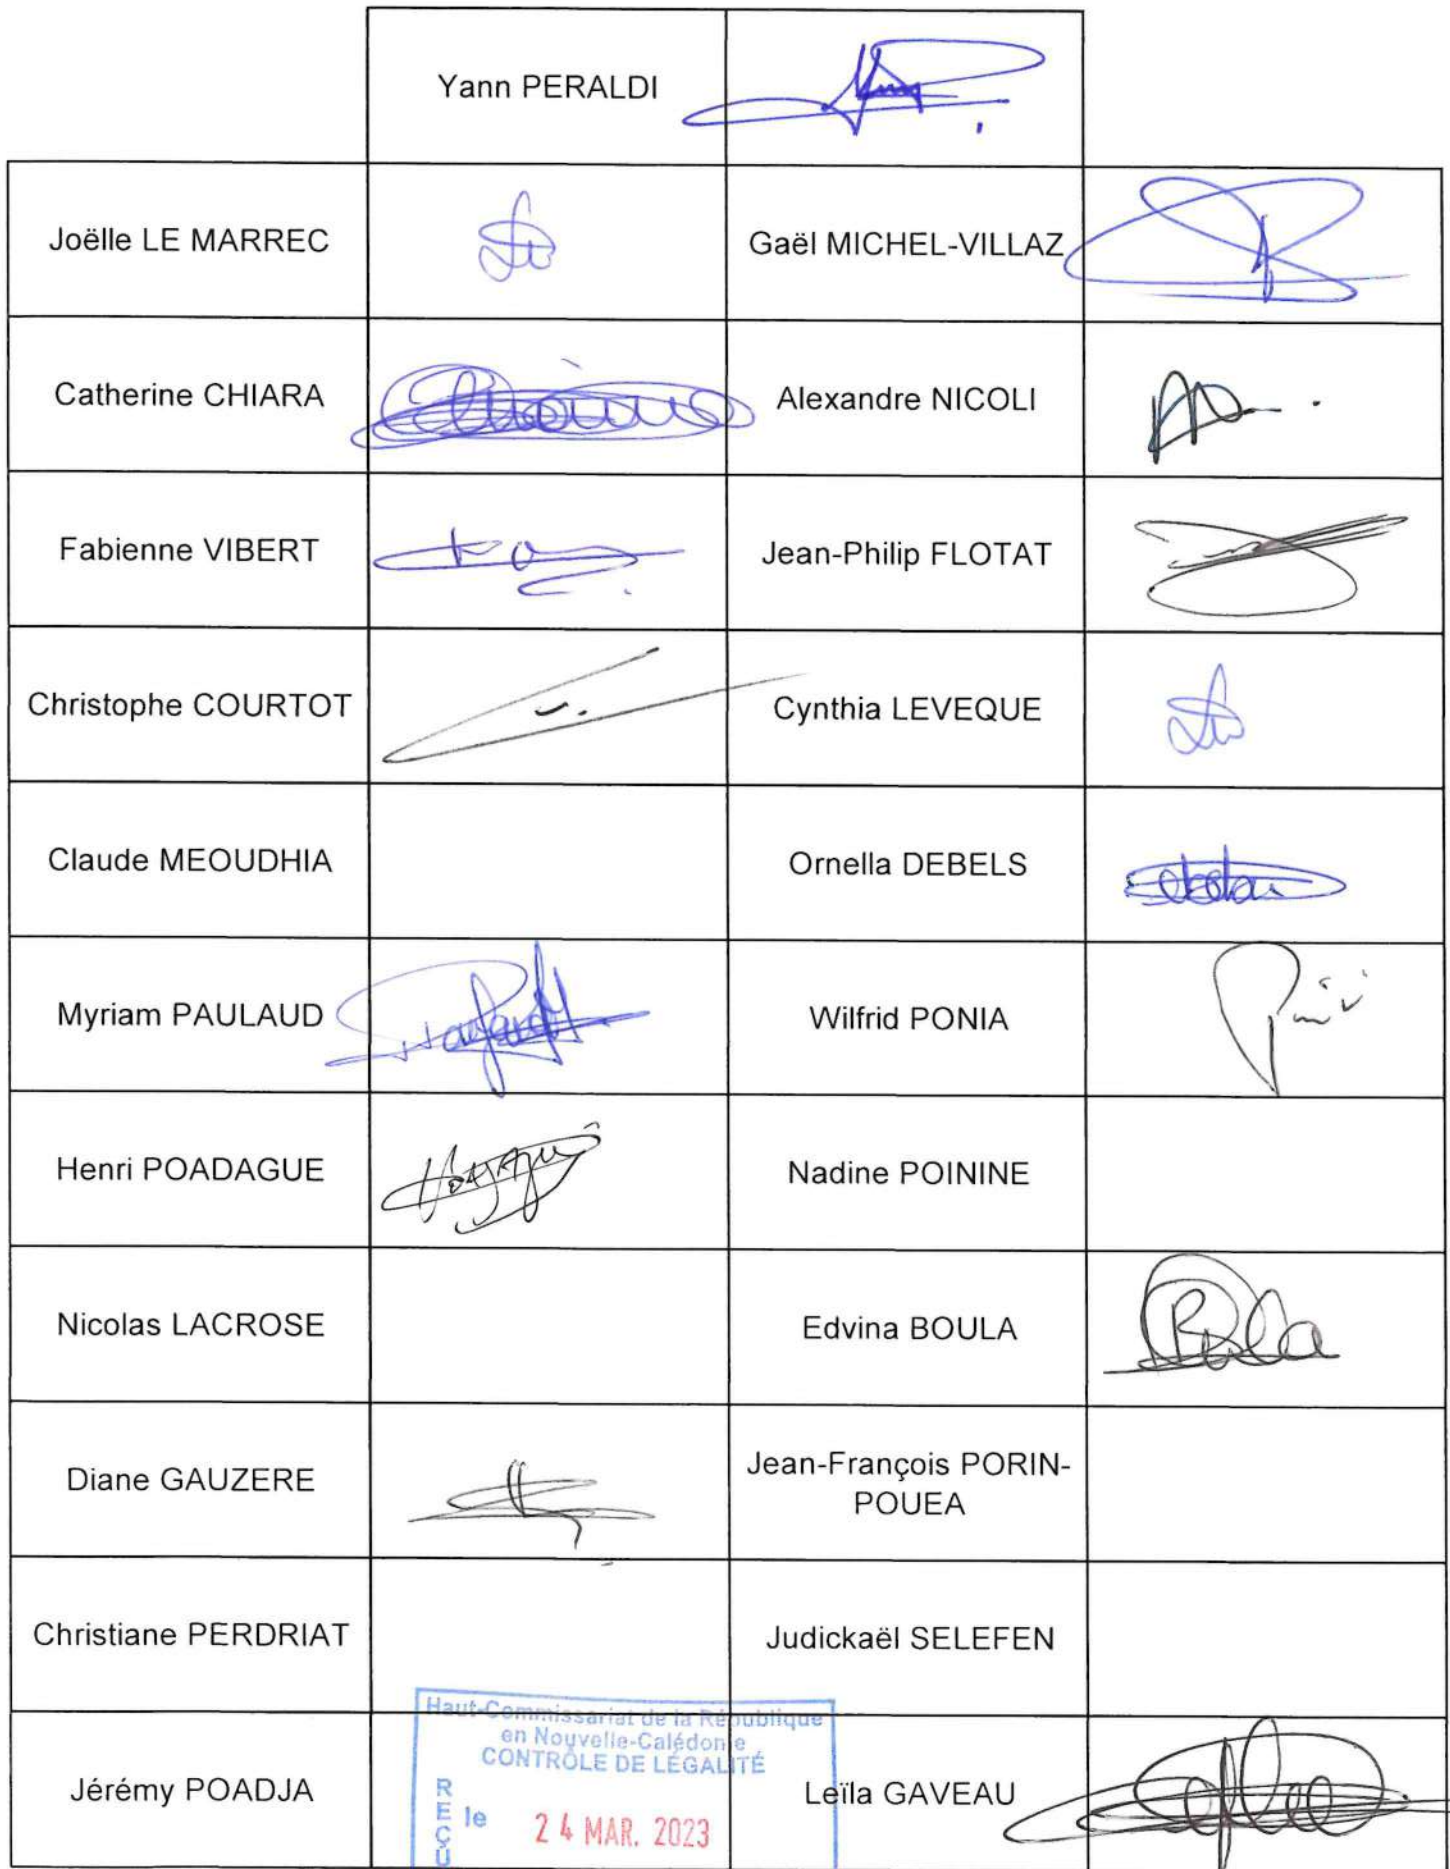 Yann PERALDI
Joëlle LE MARREC
Gaël MICHEL-VILLAZ
Catherine CHIARA
Alexandre NICOLI
Fabienne VIBERT
Jean-Philip FLOTAT
Christophe COURTOT
Cynthia LEVEQUE
Claude MEOUDHIA
Ornella DEBELS
Myriam PAULAUD
Wilfrid PONIA
Henri POADAGUE
Nadine POININE
Nicolas LACROSE
Edvina BOULA
Diane GAUZERE
Jean-François PORIN-
POUEA
Christiane PERDRIAT
Judickaël SELEFEN
Jérémy POADJA
Haut-Commissariat de la République
en Nouvelle-Calédonie
CONTRÔLE DE LÉGALITÉ
REÇU
le 24 MAR. 2023
Leïla GAVEAU